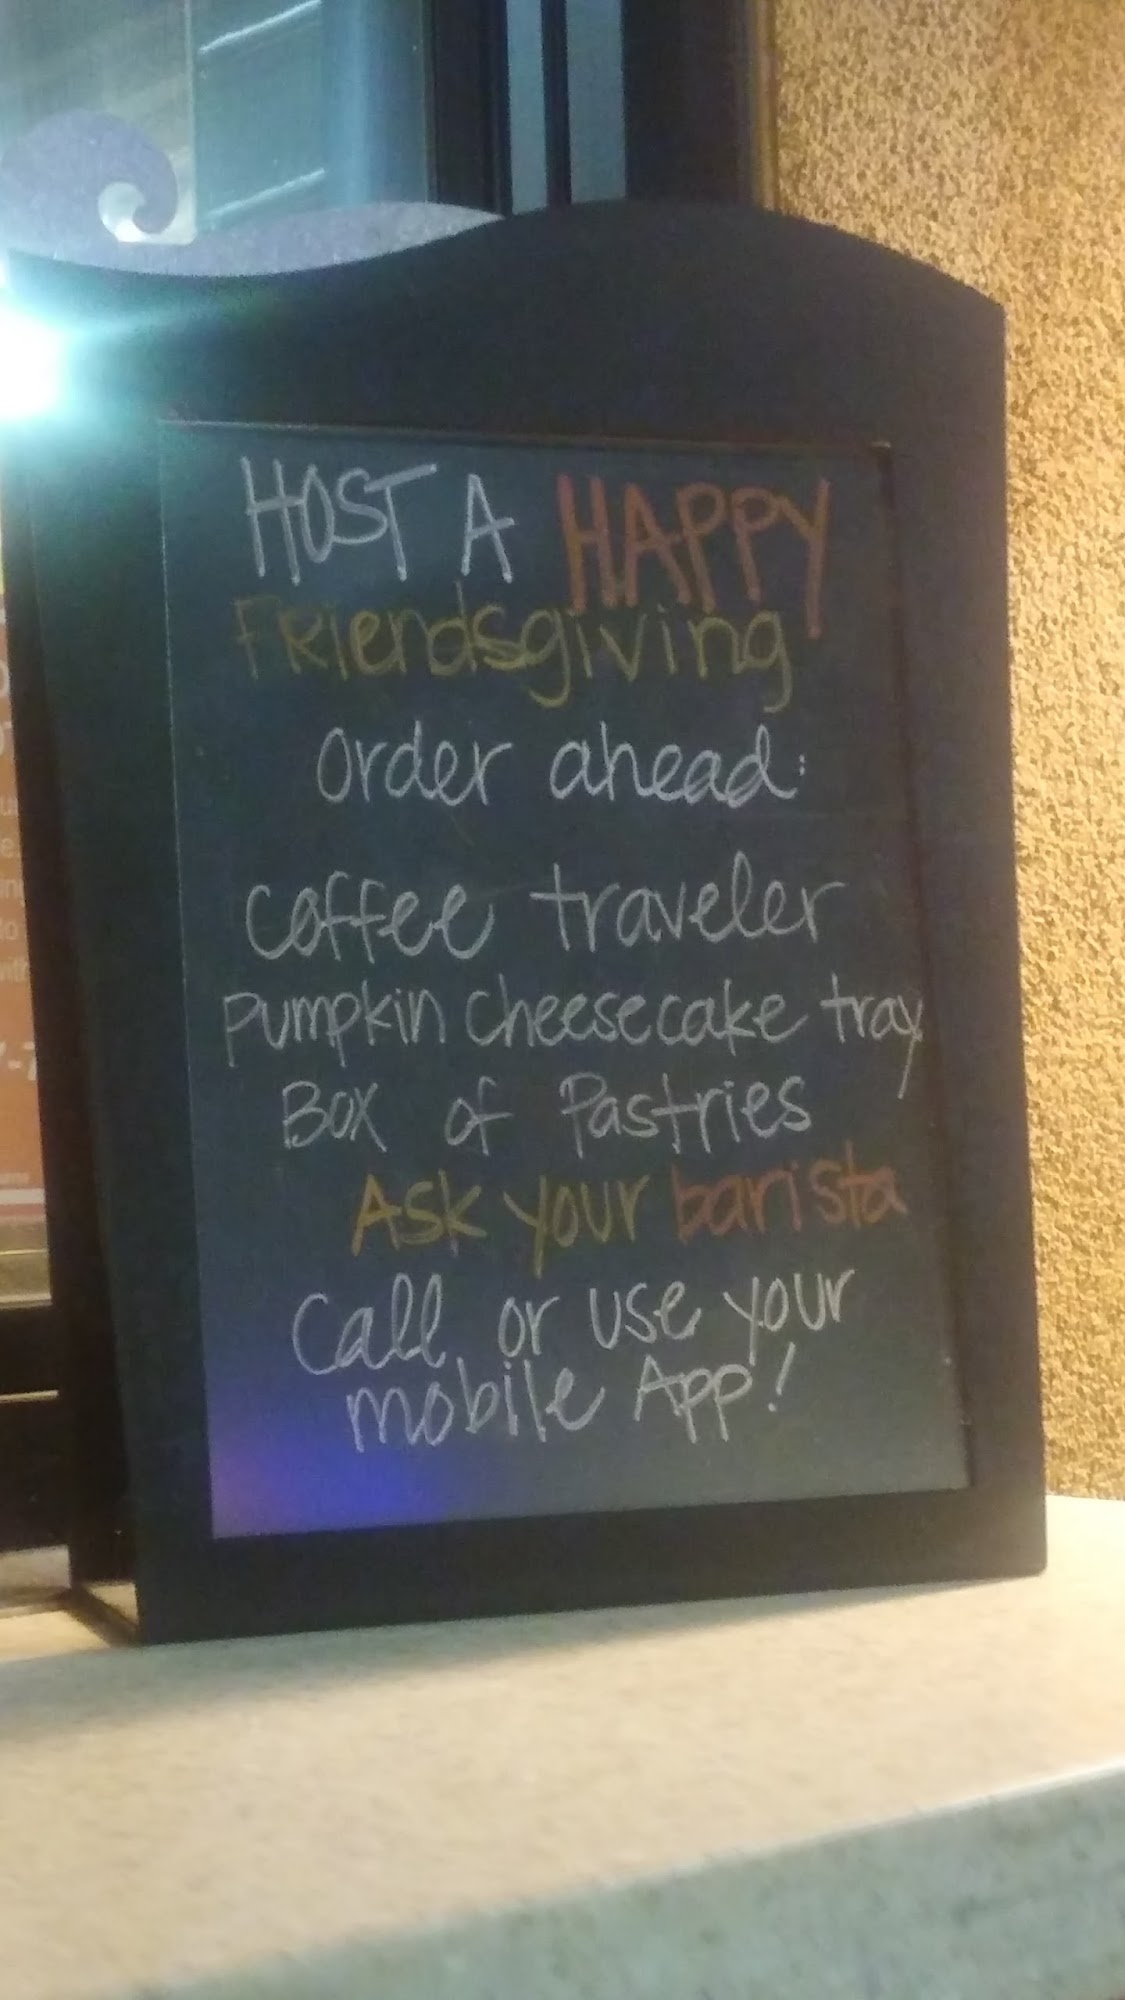 HOST A HAPPY
Friendsgiving
Order ahead:
Coffee traveler
Pumpkin Cheesecake tray
Box of Pastries
Ask your barista
Call or use your
mobile App!